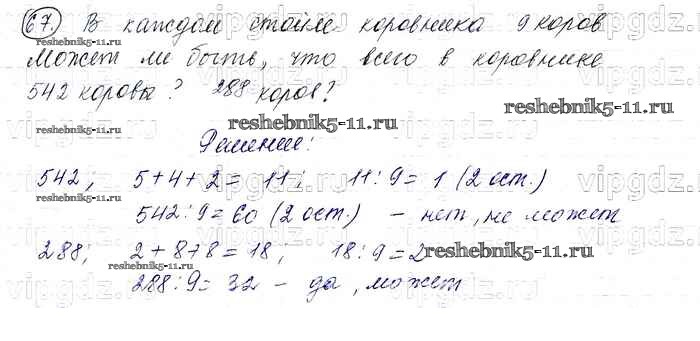 67. В каждом стойле коровника 9 коров.
Может ли быть, что всего в коровнике
542 коровы? 288 коров?
Решение:
542; 5+4+2=11; 11:9=1 (2 ост.)
542:9=60 (2 ост.) – нет, не может
288; 2+8+8=18; 18:9=2
288:9=32 – да, может
reshebnik5-11.ru
reshebnik5-11.ru
reshebnik5-11.ru
reshebnik5-11.ru
reshebnik5-11.ru
reshebnik5-11.ru
reshebnik5-11.ru
vipgdz.ru